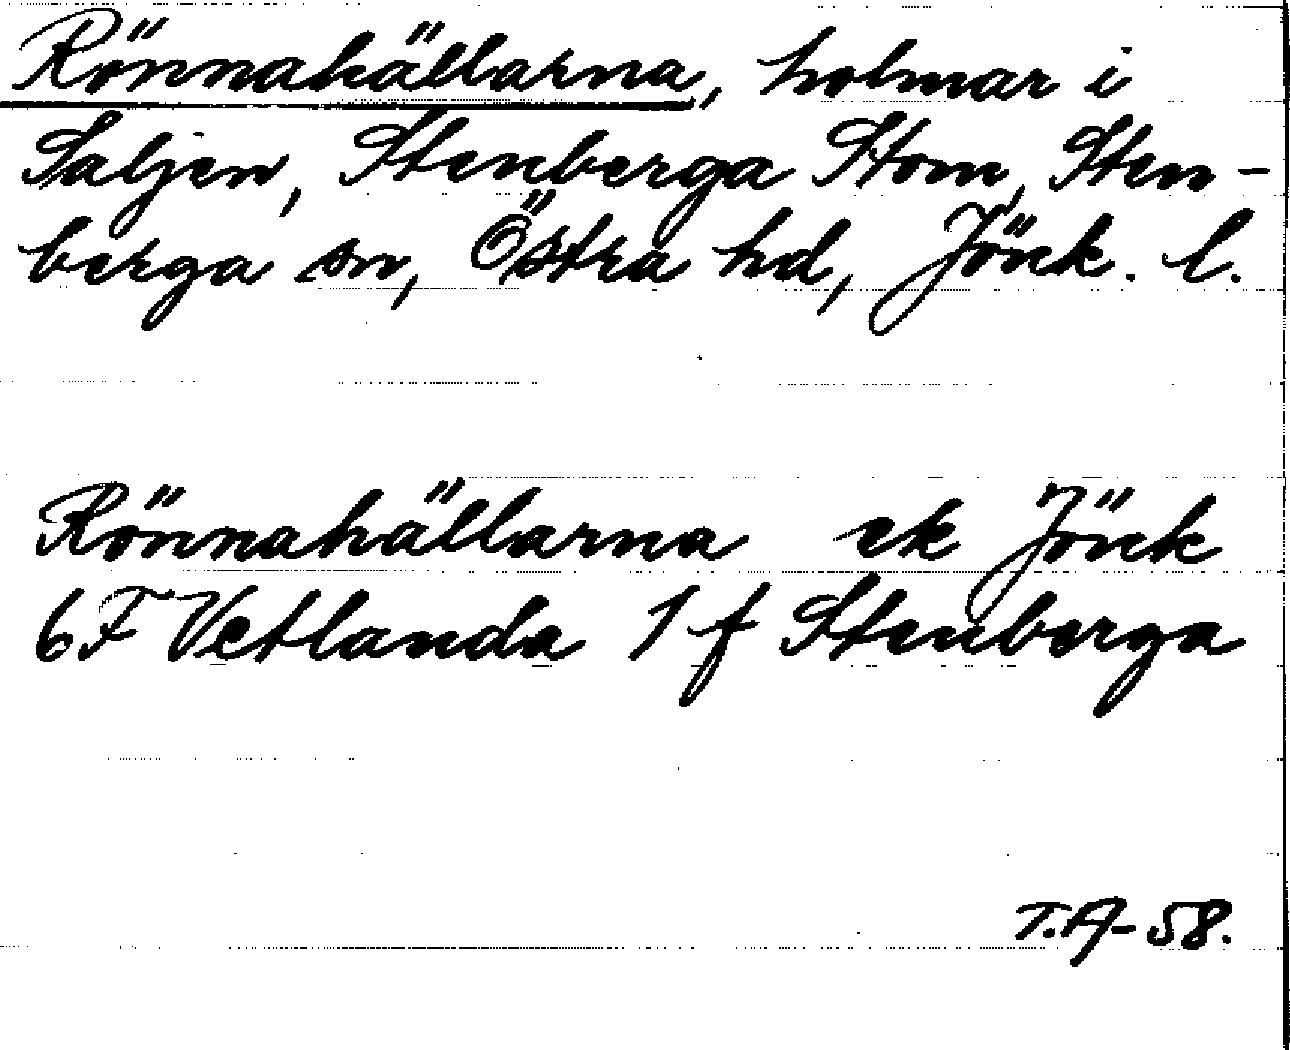 Rönnahällarna, holmar i
Saljen, Stenberga Stom, Sten-
berga sn, Östra hd, Jönk. l.
Rönnahällarna ek Jönk
6F Vetlanda 1 f Stenberga
T.A-58.